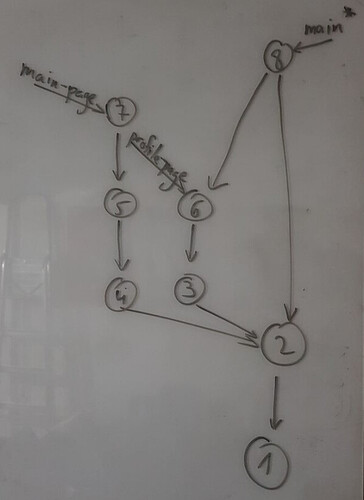 main *
8
main-page
7
profile-page
5
6
4
3
2
1